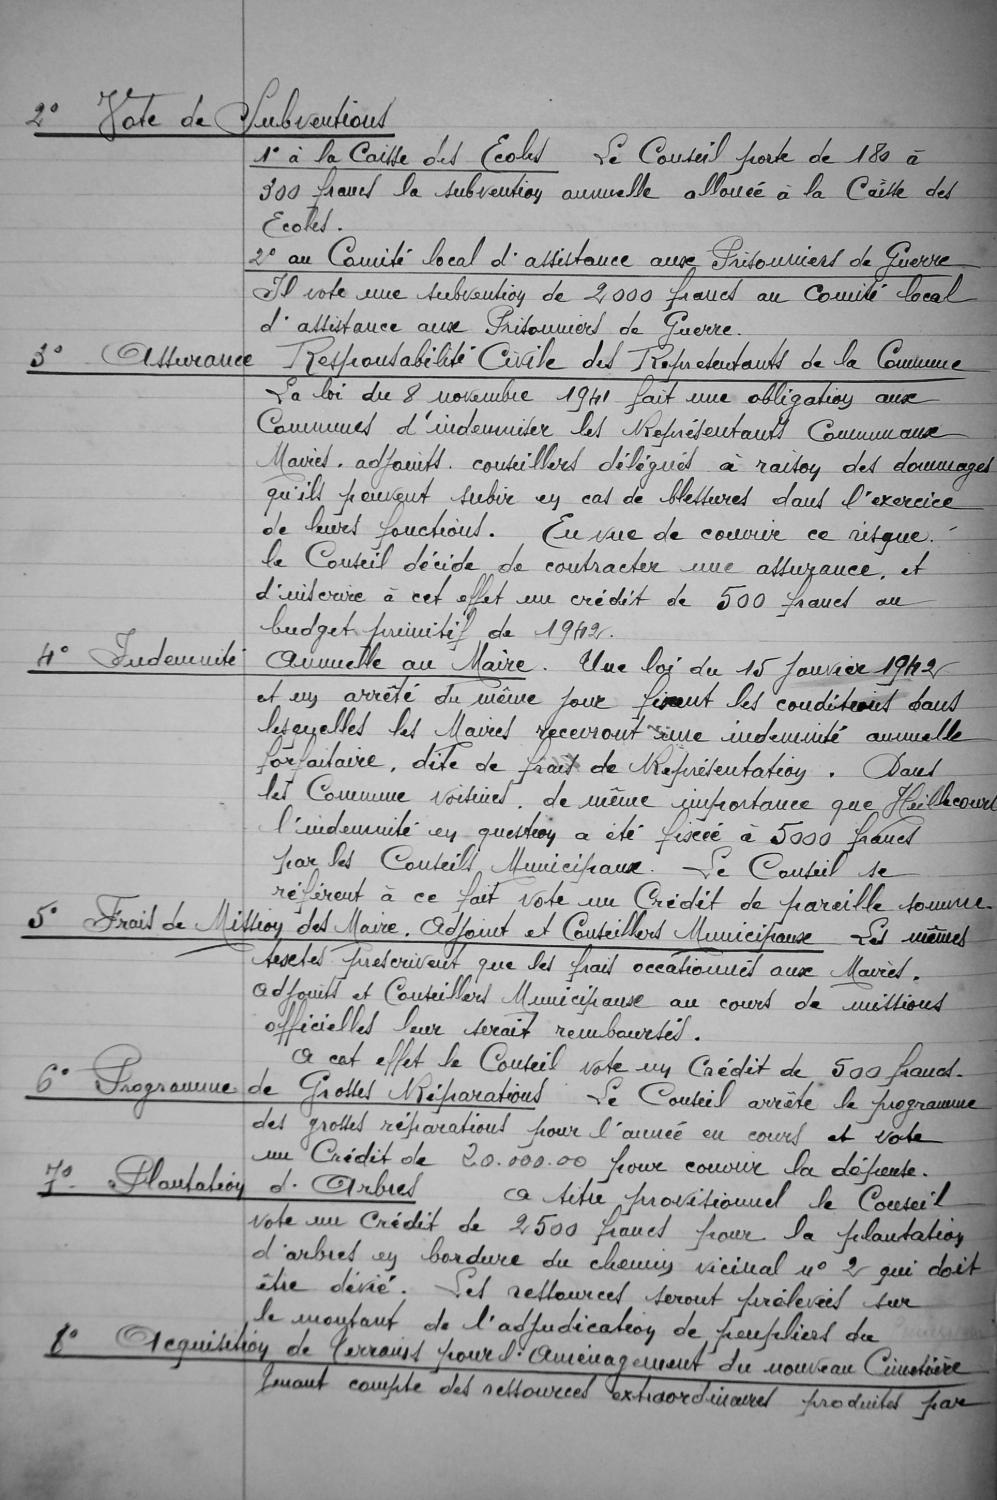 2° Vote de Subventions
1° à la Caisse des Ecoles Le Conseil porte de 180 à
300 francs la subvention annuelle allouée à la Caisse des
Ecoles.
2° au Comité local d'assistance aux Prisonniers de Guerre
Il vote une subvention de 2000 francs au Comité local
d'assistance aux Prisonniers de Guerre.
3° Assurance Responsabilité Civile des Représentants de la Commune
La loi du 8 novembre 1941 fait une obligation aux
Communes d'indemniser les Représentants Communaux
Maires. adjoints. conseillers délégués à raison des dommages
qu'ils peuvent subir en cas de blessures dans l'exercice
de leurs fonctions. En vue de couvrir ce risque.
le Conseil décide de contracter une assurance, et
d'inscrire à cet effet un crédit de 500 francs au
budget primitif de 1942.
4° Indemnité Annuelle au Maire. Une loi du 15 Janvier 1942
et un arrêté du même jour fixent les conditions dans
lesquelles les Maires recevront une indemnité annuelle
forfaitaire, dite de frais de Représentation. Dans
les Commune voisines. de même importance que Heillecourt
l'indemnité en question a été fixée à 5000 francs
par les Conseils Municipaux. Le Conseil se
référent à ce fait vote un Crédit de pareille somme.
5° Frais de Mission des Maire, Adjoint et Conseillers Municipaux Les mêmes
textes prescrivent que les frais occasionnés aux Maires.
Adjoints et Conseillers Municipaux au cours de missions
officielles leur serait remboursés.
A cet effet le Conseil vote un Crédit de 500 francs.
6° Programme de Grosses Réparations Le Conseil arrête le programme
des grosses réparations pour l'année en cours et vote
un Crédit de 20.000.00 pour couvrir la dépense.
7° Plantation d'Arbres A titre provisionnel le Conseil
vote un Crédit de 2500 francs pour la plantation
d'arbres en bordure du chemin vicinal n° 2 qui doit
être dévié. Les ressources seront prélevées sur
le montant de l'adjudication de peupliers du
8° Acquisition de Terrains pour l'Aménagement du nouveau Cimetière
Tenant compte des ressources extraordinaires produites par